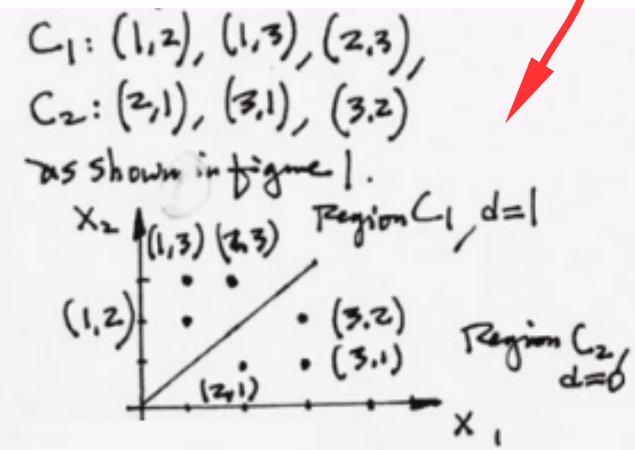 C1: (1,2), (1,3), (2,3),
C2: (2,1), (3,1), (3.2)
as shown in figure 1.
X2 (1,3) (2,3) Region C1, d=1
(1,2) (3.2)
(3,1) Region C2,
(2,1) d=0
X1